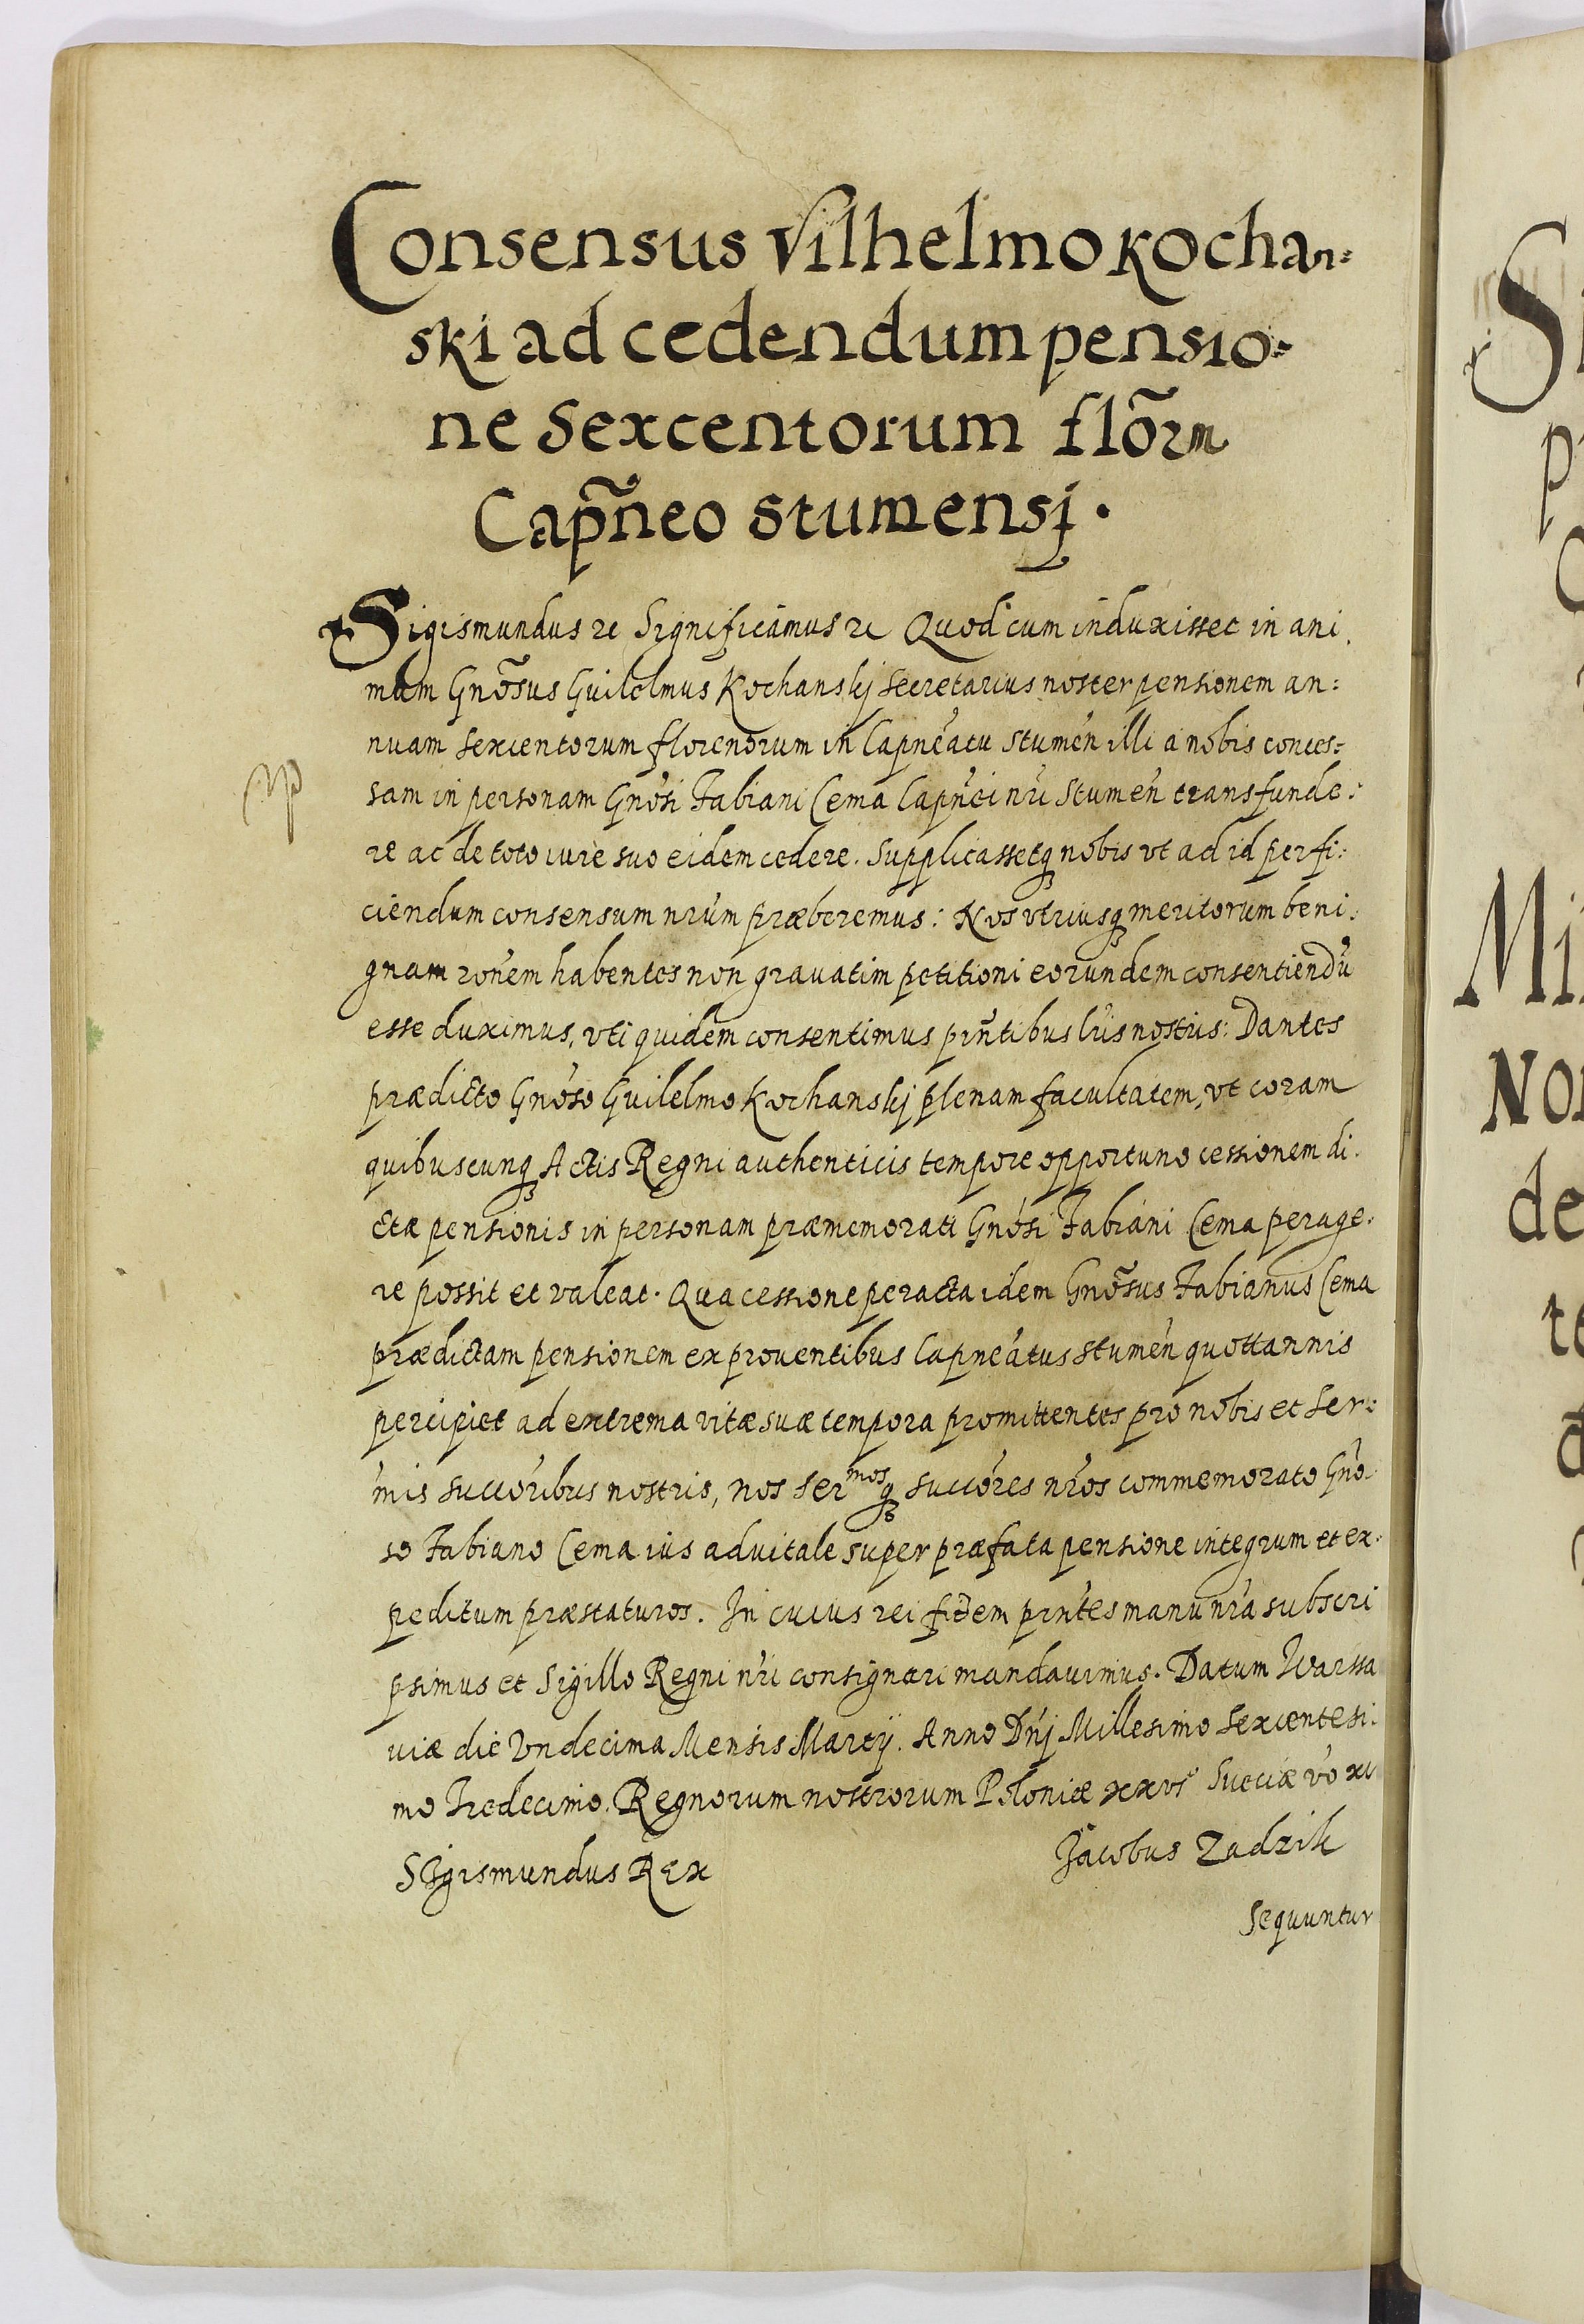 Consensus Vilhelmo Kochan=
ski ad cedendum pensio=
ne Sexcentorum flõrm
Capñeo Stumensj.
Sigismundus ꝛc Significamus ꝛc Quod cum induxisset in ani.
mum Gnõsus Guilelmus Kochanskj Secretarius noster pensionem an=
nuam Sexcentorum florenorum in Capneatu Stumeń illi a nobis conces=
sam in personam Gnosi Fabiani Cema Capnei nri Stumeń transfunde=
re ac de toto iure suo eidem cedere. Supplicassetqꝫ nobis vt ad id perfi=
ciendum consensum nrum præberemus: Nos vtriusqꝫ meritorum beni.
gnam ronem habentes non grauatim petitioni eorundem consentiendũ
esse duximus, vti quidem consentimus prñtibus lris nostris: Dantes
prædicto Gnoso Guilelmo Kochanskj plenam facultatem, vt coram
quibuscunqꝫ Actis Regni authenticis tempore opportuno cessionem di.
ctæ pensionis in personam præmemorati Gnosi Fabiani Cema perage.
re possit et valeat. Qua cessione peracta idem Gnõsus Fabianus Cema
prædictam pensionem ex prouentibus Capneatus Stumeń quottannis
percipiet ad extrema vitæ suæ tempora promittentes pro nobis et Ser=
mis succoribus nostris, nos Sermosqꝫ succores nros commemorato Gno
so Fabiano Cema ius aduitale super præfata pensione integrum et ex.
peditum præstaturos. In cuius rei fidem prntes manu nra subscri
psimus et Sigillo Regni nri consignari mandauimus. Datum Warssa
uiæ die Vndecima Mensis Martij. Anno Dnj Millesimo Sexcentesi.
mo Tredecimo. Regnorum nostrorum Poloniæ xxvi Sueciæ vo xx
Sigismundus Rex
Jacobus Zadzik
Sequuntur